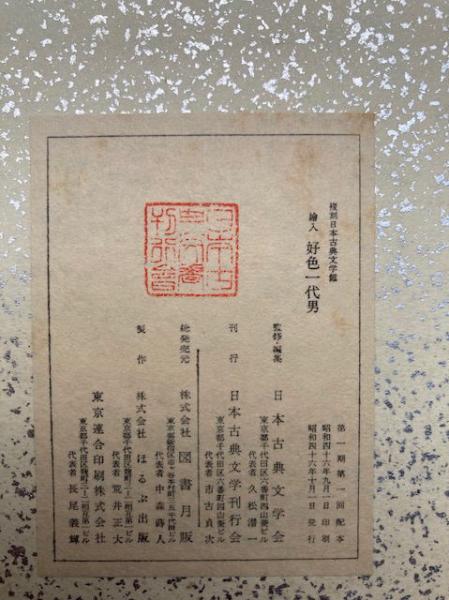 複刻日本古典文学館
繪入 好色一代男
第一期第一回配本
昭和四十六年九月一日印刷
昭和四十六年十月一日発行
監修・編集 日本古典文学会
東京都千代田区六番町四山菱ビル
代表者 久松潜一
刊行 日本古典文学刊行会
東京都千代田区六番町四山菱ビル
代表者 市古貞次
総発売元 株式会社 図書月販
代表者 中森蒔人
製作 株式会社 ほるぷ出版
代表者 荒井正大
東京連合印刷株式会社
代表者 長尾義輝